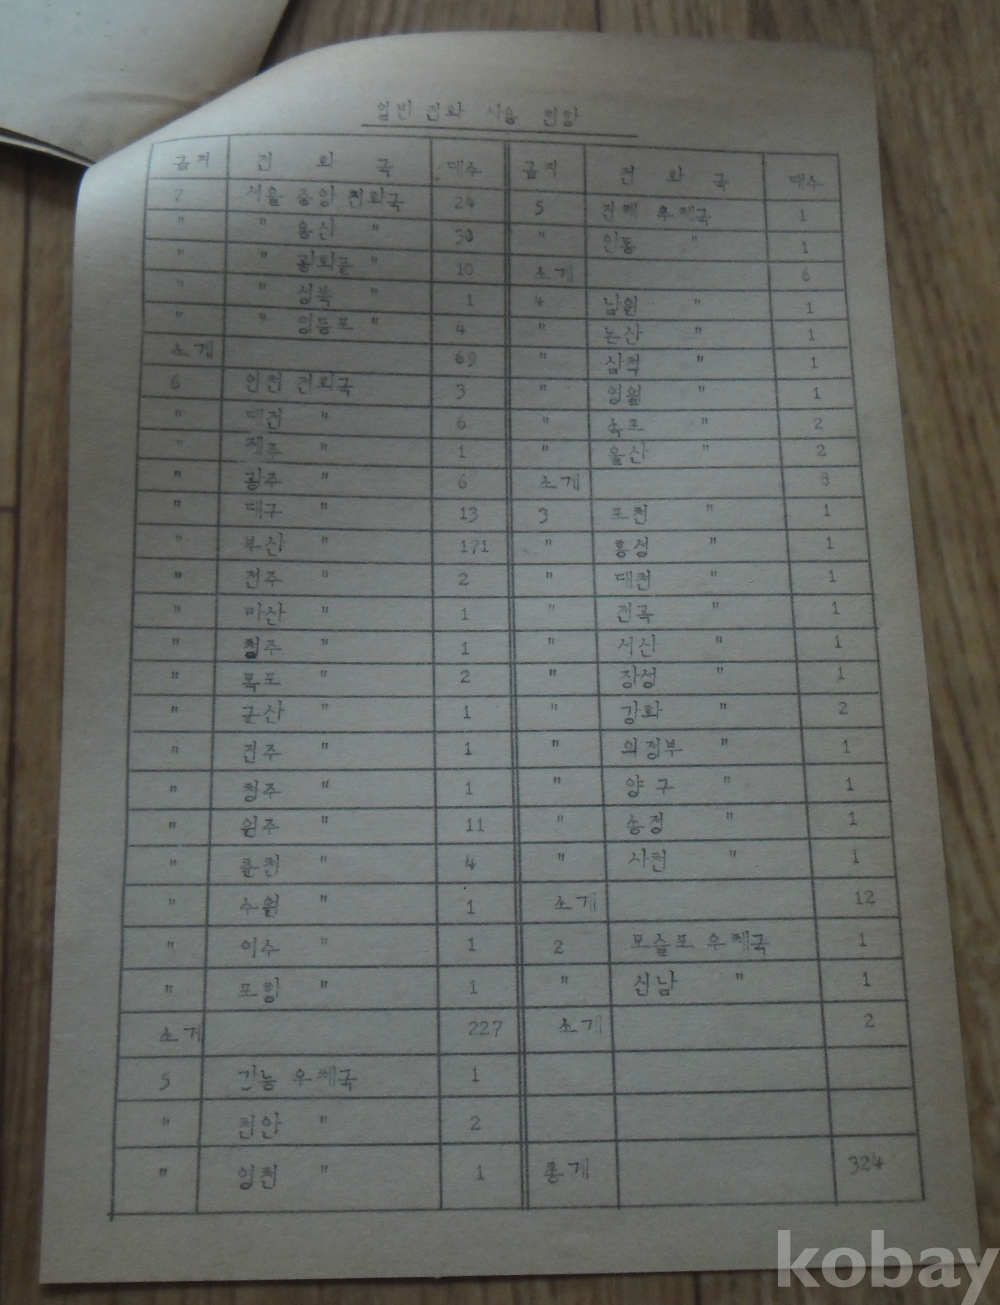 일반 전화 사용 현황
급지 전 화 국 대수
7 서울 중앙 전화국 24
" " 용산 " 30
" " 광화문 " 10
" " 성북 " 1
" " 영등포 " 4
소계 69
6 인천 전화국 3
" 대전 " 6
" 제주 " 1
" 광주 " 6
" 대구 " 13
" 부산 " 171
" 전주 " 2
" 마산 " 1
" 청주 " 1
" 목포 " 2
" 군산 " 1
" 진주 " 1
" " 1
" 원주 " 11
" 춘천 " 4
" 수원 " 1
" 여수 " 1
" 포항 " 1
소계 227
5 우체국 1
" 천안 " 2
" " 1
급지 전 화 국 대수
5 진해 우체국 1
" 안동 " 1
소계 6
4 남원 " 1
" 논산 " 1
" 삼척 " 1
" 영월 " 1
" 속초 " 2
" 울산 " 2
소계 8
3 포천 " 1
" 홍성 " 1
" 대천 " 1
" 전곡 " 1
" 서산 " 1
" 장성 " 1
" 강화 " 2
" 의정부 " 1
" 양구 " 1
" 송정 " 1
" 사천 " 1
소계 12
2 모슬포 우체국 1
" 신남 " 1
소계 2
총계 324
kobay